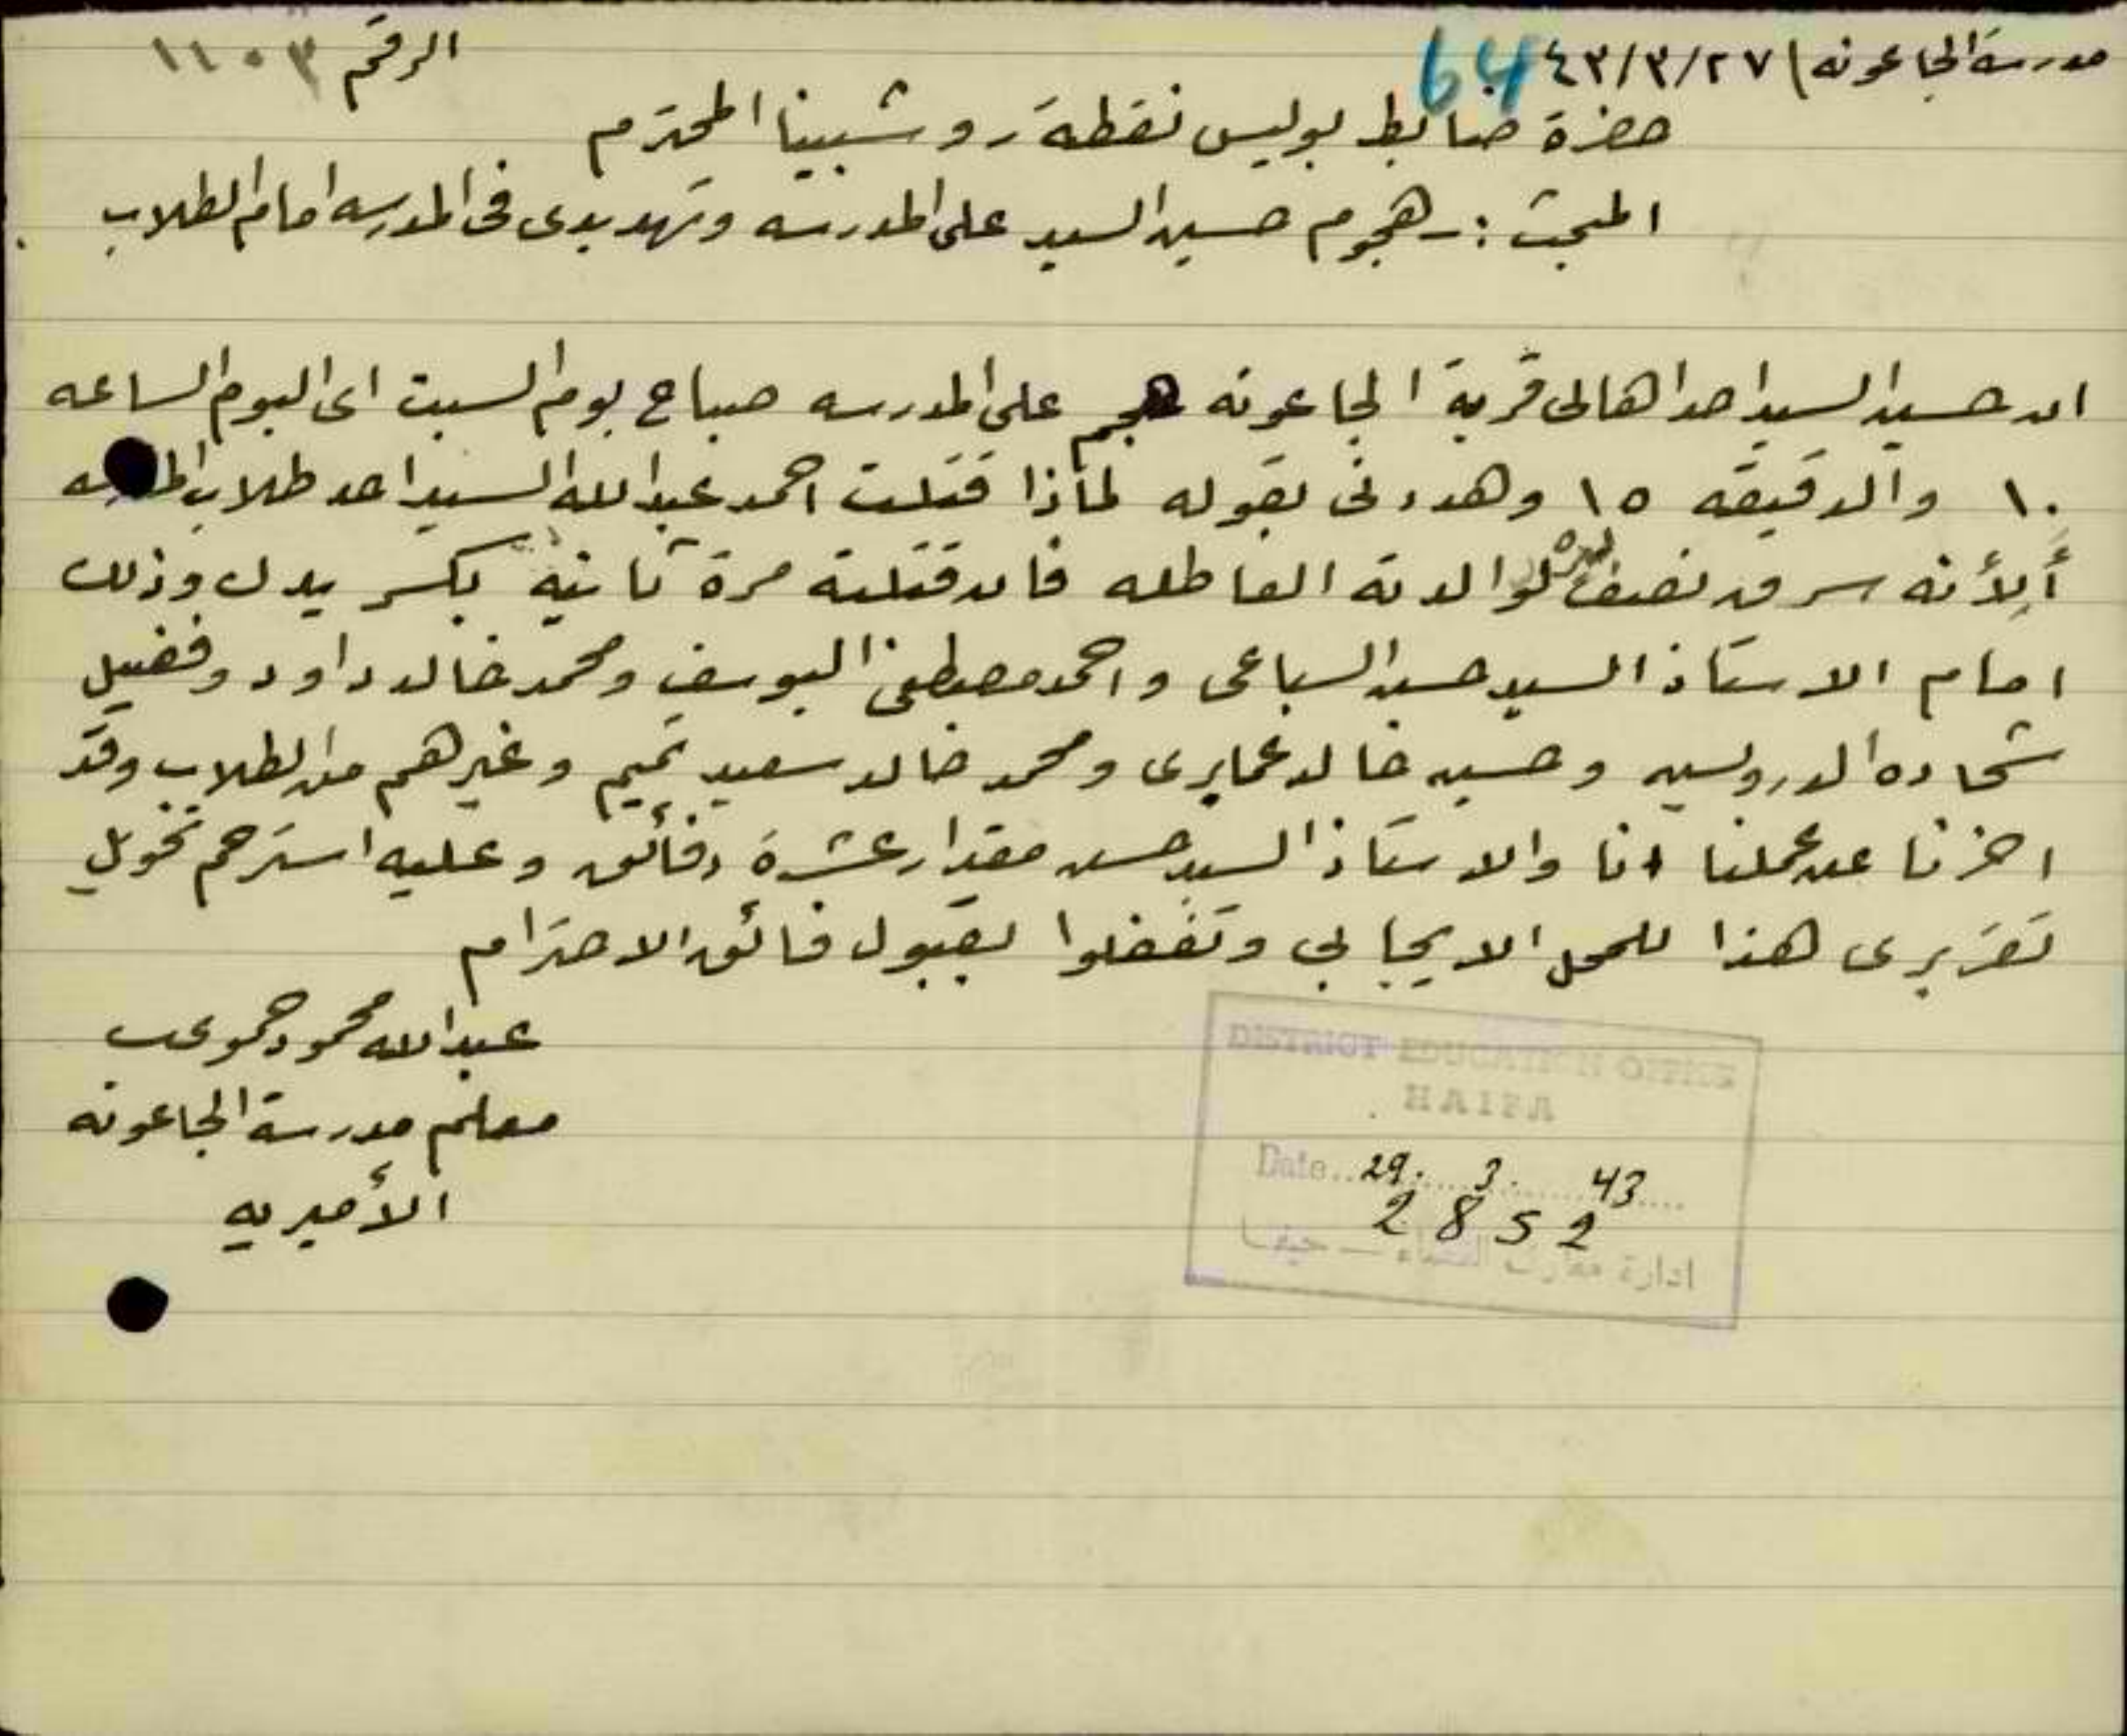 مدرسة الجاعونه / ٤٣/٣/٢٧ 64 الرقم ١١٠٣
حضرة ضابط بوليس نقطة روشبينا المحترم
المبحث :- هجوم حسين السيد على المدرسه وتهديدى فى المدرسه امام الطلاب .
ان حسين السيد احد اهالى قرية الجاعونه هجم على المدرسه صباح يوم السبت اى اليوم الساعه
١٠ والدقيقه ١٥ وهددنى بقوله لماذا قتلت احمد عبدالله السيد احد طلاب المدرسه
ألأنه سرق نصف لوالدته العاطله فان قتلته مرة ثانية بكسر يدك وذلك
امام الاستاذ السيد حسن السباعى واحمد مصطفى اليوسف ومحمد خالد داود وفضيل
شحاده الدرويش وحسين خالد عمايرى ومحمد خالد سعيد تميم وغيرهم من الطلاب وقد
اخرنا عن عملنا انا والاستاذ السيد حسن مقدار عشرة دقائق وعليه استرحم تحويل
تقريرى هذا للمحل الايجابي وتفضلوا بقبول فائق الاحترام
عبدالله محمود حمو
معلم مدرسة الجاعونه
الأميريه
DISTRICT EDUCATION OFFICE
HAIFA
Date.. 29. 3. 43
2852
ادارة معارف اللواء — حيفا